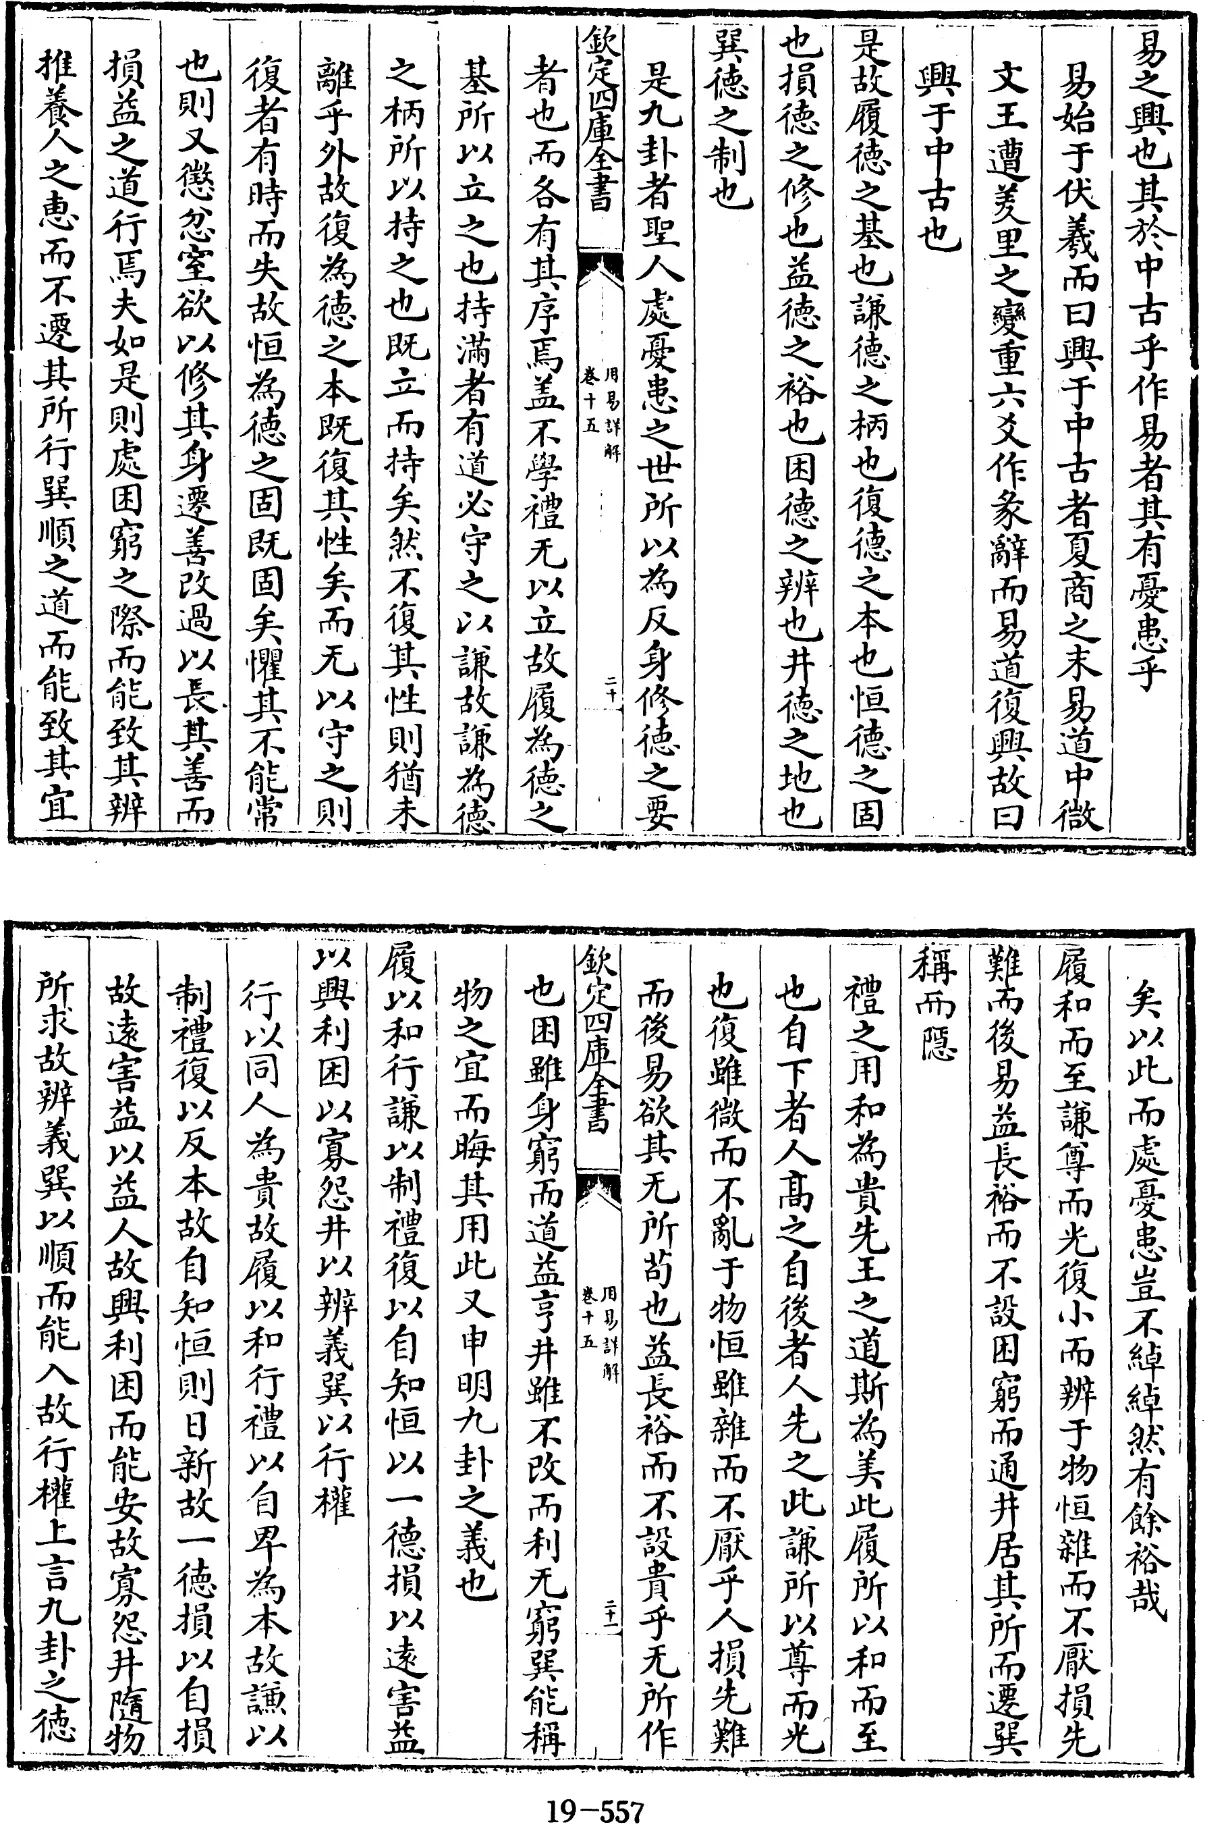 易之興也其於中古乎作易者其有憂患乎
易始于伏羲而曰興于中古者夏商之末易道中微
文王遭羑里之變重六爻作彖辭而易道復興故曰
興于中古也
是故履德之基也謙德之柄也復德之本也恒德之固
也損德之修也益德之裕也困德之辨也井德之地也
巽德之制也
是九卦者聖人處憂患之世所以為反身修德之要
欽定四庫全書
周易詳解
卷十五
二十
者也而各有其序焉盖不學禮无以立故履為德之
基所以立之也持滿者有道必守之以謙故謙為德
之柄所以持之也既立而持矣然不復其性則猶未
離乎外故復為德之本既復其性矣而无以守之則
復者有時而失故恒為德之固既固矣懼其不能常
也則又懲忿窒欲以修其身遷善改過以長其善而
損益之道行焉夫如是則處困窮之際而能致其辨
推養人之惠而不遷其所行巽順之道而能致其宜
矣以此而處憂患豈不綽綽然有餘裕哉
履和而至謙尊而光復小而辨于物恒雜而不厭損先
難而後易益長裕而不設困窮而通井居其所而遷巽
稱而隱
禮之用和為貴先王之道斯為美此履所以和而至
也自下者人髙之自後者人先之此謙所以尊而光
也復雖微而不亂于物恒雖雜而不厭乎人損先難
而後易欲其无所茍也益長裕而不設貴乎无所作
欽定四庫全書
周易詳解
卷十五
二十一
也困雖身窮而道益亨井雖不改而利无窮巽能稱
物之宜而晦其用此又申明九卦之義也
履以和行謙以制禮復以自知恒以一德損以逺害益
以興利困以寡怨井以辨義巽以行權
行以同人為貴故履以和行禮以自卑為本故謙以
制禮復以反本故自知恒則日新故一德損以自損
故逺害益以益人故興利困而能安故寡怨井隨物
所求故辨義巽以順而能入故行權上言九卦之德
19-557